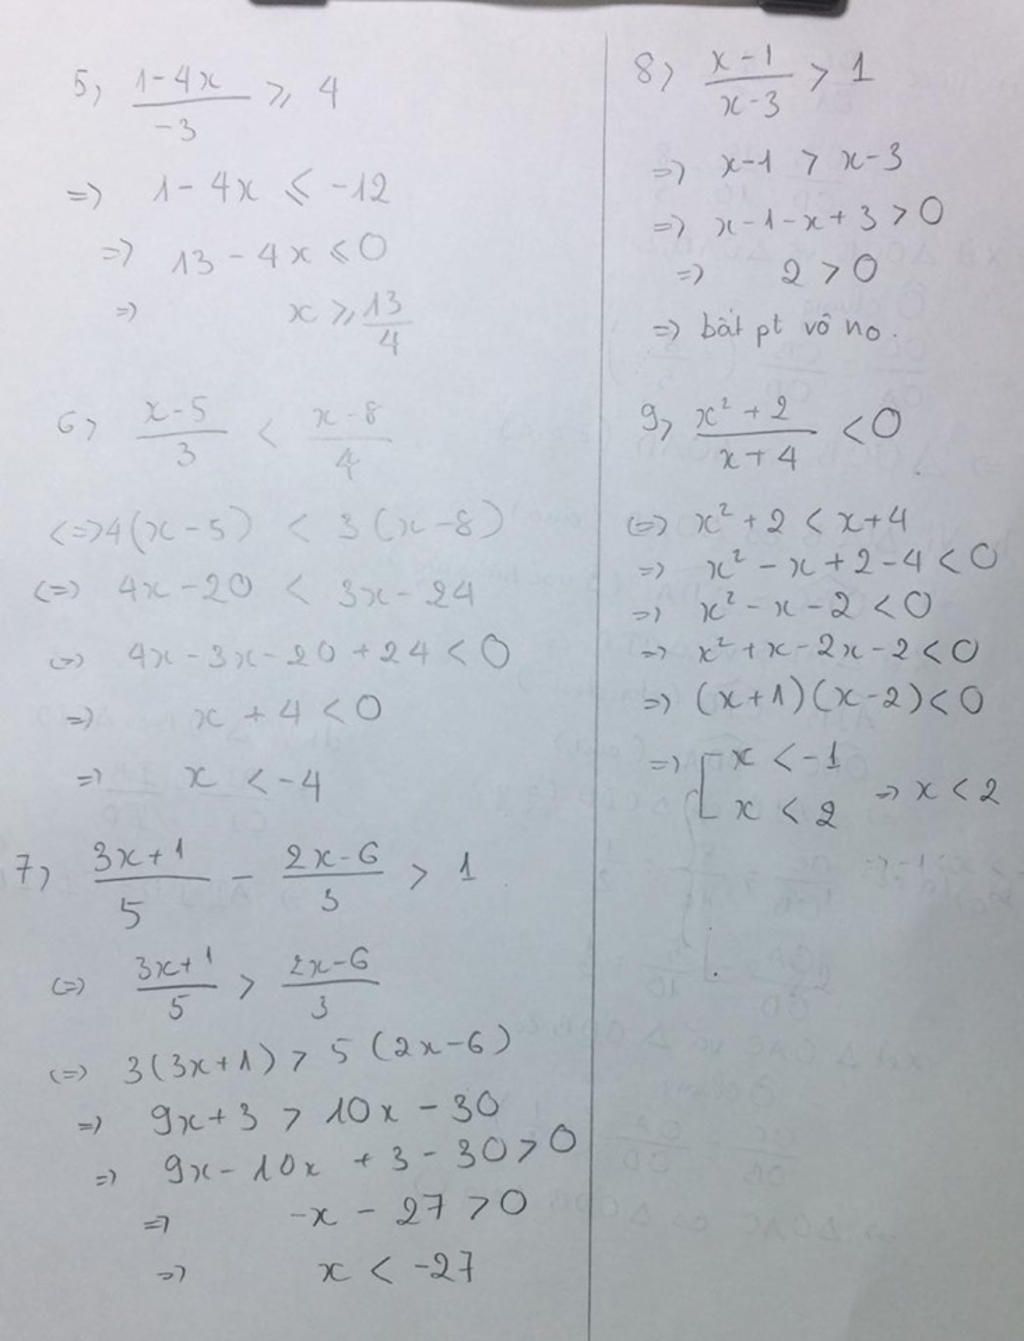 5) (1-4x)/(-3) ≥ 4
=> 1-4x ≤ -12
=> 13-4x ≤ 0
=> x ≥ 13/4
6) (x-5)/3 < (x-8)/4
<=> 4(x-5) < 3(x-8)
<=> 4x-20 < 3x-24
<=> 4x-3x-20+24 < 0
=> x+4 < 0
=> x < -4
7) (3x+1)/5 - (2x-6)/3 > 1
<=> (3x+1)/5 > (2x-6)/3
<=> 3(3x+1) > 5(2x-6)
=> 9x+3 > 10x-30
=> 9x-10x+3-30 > 0
=> -x-27 > 0
=> x < -27
8) (x-1)/(x-3) > 1
=> x-1 > x-3
=> x-1-x+3 > 0
=> 2 > 0
=> bất pt vô no.
9) (x²+2)/(x+4) < 0
<=> x²+2 < x+4
=> x²-x+2-4 < 0
=> x²-x-2 < 0
=> x²+x-2x-2 < 0
=> (x+1)(x-2) < 0
=> [ x < -1
x < 2 => x < 2